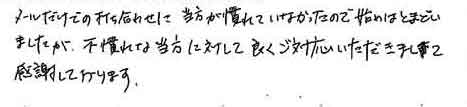 メールだけでの打ち合わせに 当方が慣れていなかったので始めはとまどい
ましたが、不慣れな当方に対して良くご対応いただきまして
感謝しております。